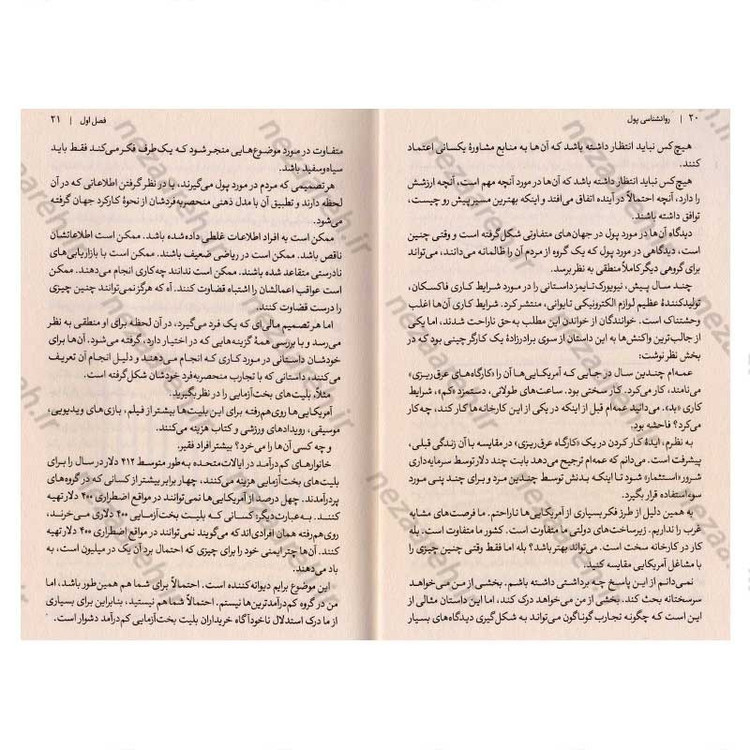 ۲۰ | روانشناسی پول
هیچ‌کس نباید انتظار داشته باشد که آن‌ها به منابع مشاورهٔ یکسانی اعتماد
کنند.
هیچ‌کس نباید انتظار داشته باشد که آن‌ها در مورد آنچه مهم است، آنچه ارزشش
را دارد، آنچه احتمالاً در آینده اتفاق می‌افتد و اینکه بهترین مسیر پیش رو چیست،
توافق داشته باشند.
دیدگاه آن‌ها در مورد پول در جهان‌های متفاوتی شکل گرفته است و وقتی چنین
است، دیدگاهی در مورد پول که یک گروه از مردم آن را ظالمانه می‌دانند، می‌تواند
برای گروهی دیگر کاملاً منطقی به نظر برسد.
چند سال پیش، نیویورک‌تایمز داستانی را در مورد شرایط کاری فاکسکان،
تولیدکنندهٔ عظیم لوازم الکترونیکی تایوانی، منتشر کرد. شرایط کاری آن‌ها اغلب
وحشتناک است. خوانندگان از خواندن این مطلب به حق ناراحت شدند، اما یکی
از جالب‌ترین واکنش‌ها به این داستان از سوی برادرزادهٔ یک کارگر چینی بود که در
بخش نظر نوشت:
عمه‌ام چندین سال در جایی که آمریکایی‌ها آن را «کارگاه‌های عرق‌ریزی»
می‌نامند، کار می‌کرد. کار سختی بود. ساعت‌های طولانی، دستمزد «کم»، شرایط
کاری «بد». می‌دانید عمه‌ام قبل از اینکه در یکی از این کارخانه‌ها کار کند، چه کار
می‌کرد؟ فاحشه بود.
به نظرم، ایدهٔ کار کردن در یک «کارگاه عرق‌ریزی»، در مقایسه با آن زندگی قبلی،
پیشرفت است. می‌دانم که عمه‌ام ترجیح می‌دهد بابت چند دلار توسط سرمایه‌داری
شرور «استثمار» شود تا اینکه بدنش توسط چندین مرد و برای چند پنی مورد
سوءاستفاده قرار بگیرد.
به همین دلیل از طرز فکر بسیاری از آمریکایی‌ها ناراحتم. ما فرصت‌های مشابه
غرب را نداریم. زیرساخت‌های دولتی ما متفاوت است. کشور ما متفاوت است. بله
کار در کارخانه سخت است. می‌تواند بهتر باشد؟ بله اما فقط وقتی چنین چیزی را
با مشاغل آمریکایی مقایسه کنید.
نمی‌دانم از این پاسخ چه برداشتی داشته باشم. بخشی از من می‌خواهد
سرسختانه بحث کند. بخشی از من می‌خواهد درک کند، اما این داستان مثالی از
این است که چگونه تجارب گوناگون می‌تواند به شکل‌گیری دیدگاه‌های بسیار
فصل اول | ۲۱
متفاوت در مورد موضوع‌هایی منجر شود که یک طرف فکر می‌کند فقط باید
سیاه‌وسفید باشد.
هر تصمیمی که مردم در مورد پول می‌گیرند، با در نظر گرفتن اطلاعاتی که در آن
لحظه دارند و تطبیق آن با مدل ذهنی منحصربه‌فردشان از نحوهٔ کارکرد جهان گرفته
می‌شود.
ممکن است به افراد اطلاعات غلطی داده شده باشد. ممکن است اطلاعاتشان
ناقص باشد. ممکن است در ریاضی ضعیف باشند. ممکن است با بازاریابی‌های
نادرستی متقاعد شده باشند. ممکن است ندانند چه‌کاری انجام می‌دهند. ممکن
است عواقب اعمالشان را اشتباه قضاوت کنند. آه که هرگز نمی‌توانند چنین چیزی
را درست قضاوت کنند.
اما هر تصمیم مالی‌ای که یک فرد می‌گیرد، در آن لحظه برای او منطقی به نظر
می‌رسد و با بررسی همهٔ گزینه‌هایی که در اختیار دارد، گرفته می‌شود. آن‌ها برای
خودشان داستانی در مورد کاری که انجام می‌دهند و دلیل انجام آن تعریف
می‌کنند، داستانی که با تجارب منحصربه‌فرد خودشان شکل گرفته است.
مثلاً، بلیت‌های بخت‌آزمایی را در نظر بگیرید.
آمریکایی‌ها روی‌هم‌رفته برای این بلیت‌ها بیشتر از فیلم، بازی‌های ویدیویی،
موسیقی، رویدادهای ورزشی و کتاب هزینه می‌کنند.
و چه کسی آن‌ها را می‌خرد؟ بیشتر افراد فقیر.
خانوارهای کم‌درآمد در ایالات‌متحده به‌طور متوسط ۴۱۲ دلار در سال را برای
بلیت‌های بخت‌آزمایی هزینه می‌کنند، چهار برابر بیشتر از کسانی که در گروه‌های
پردرآمدند. چهل درصد از آمریکایی‌ها نمی‌توانند در مواقع اضطراری ۴۰۰ دلار تهیه
کنند. به‌عبارت‌دیگر: کسانی که بلیت بخت‌آزمایی ۴۰۰ دلاری می‌خرند،
روی‌هم‌رفته همان افرادی‌اند که می‌گویند نمی‌توانند در مواقع اضطراری ۴۰۰ دلار تهیه
کنند. آن‌ها چتر ایمنی خود را برای چیزی که احتمال برد آن یک در میلیون است، به
باد می‌دهند.
این موضوع برایم دیوانه‌کننده است. احتمالاً برای شما هم همین‌طور باشد، اما
من در گروه کم‌درآمدترین‌ها نیستم. احتمالاً شما هم نیستید، بنابراین برای بسیاری
از ما درک استدلال ناخودآگاه خریداران بلیت بخت‌آزمایی کم‌درآمد دشوار است.
nezareh.ir